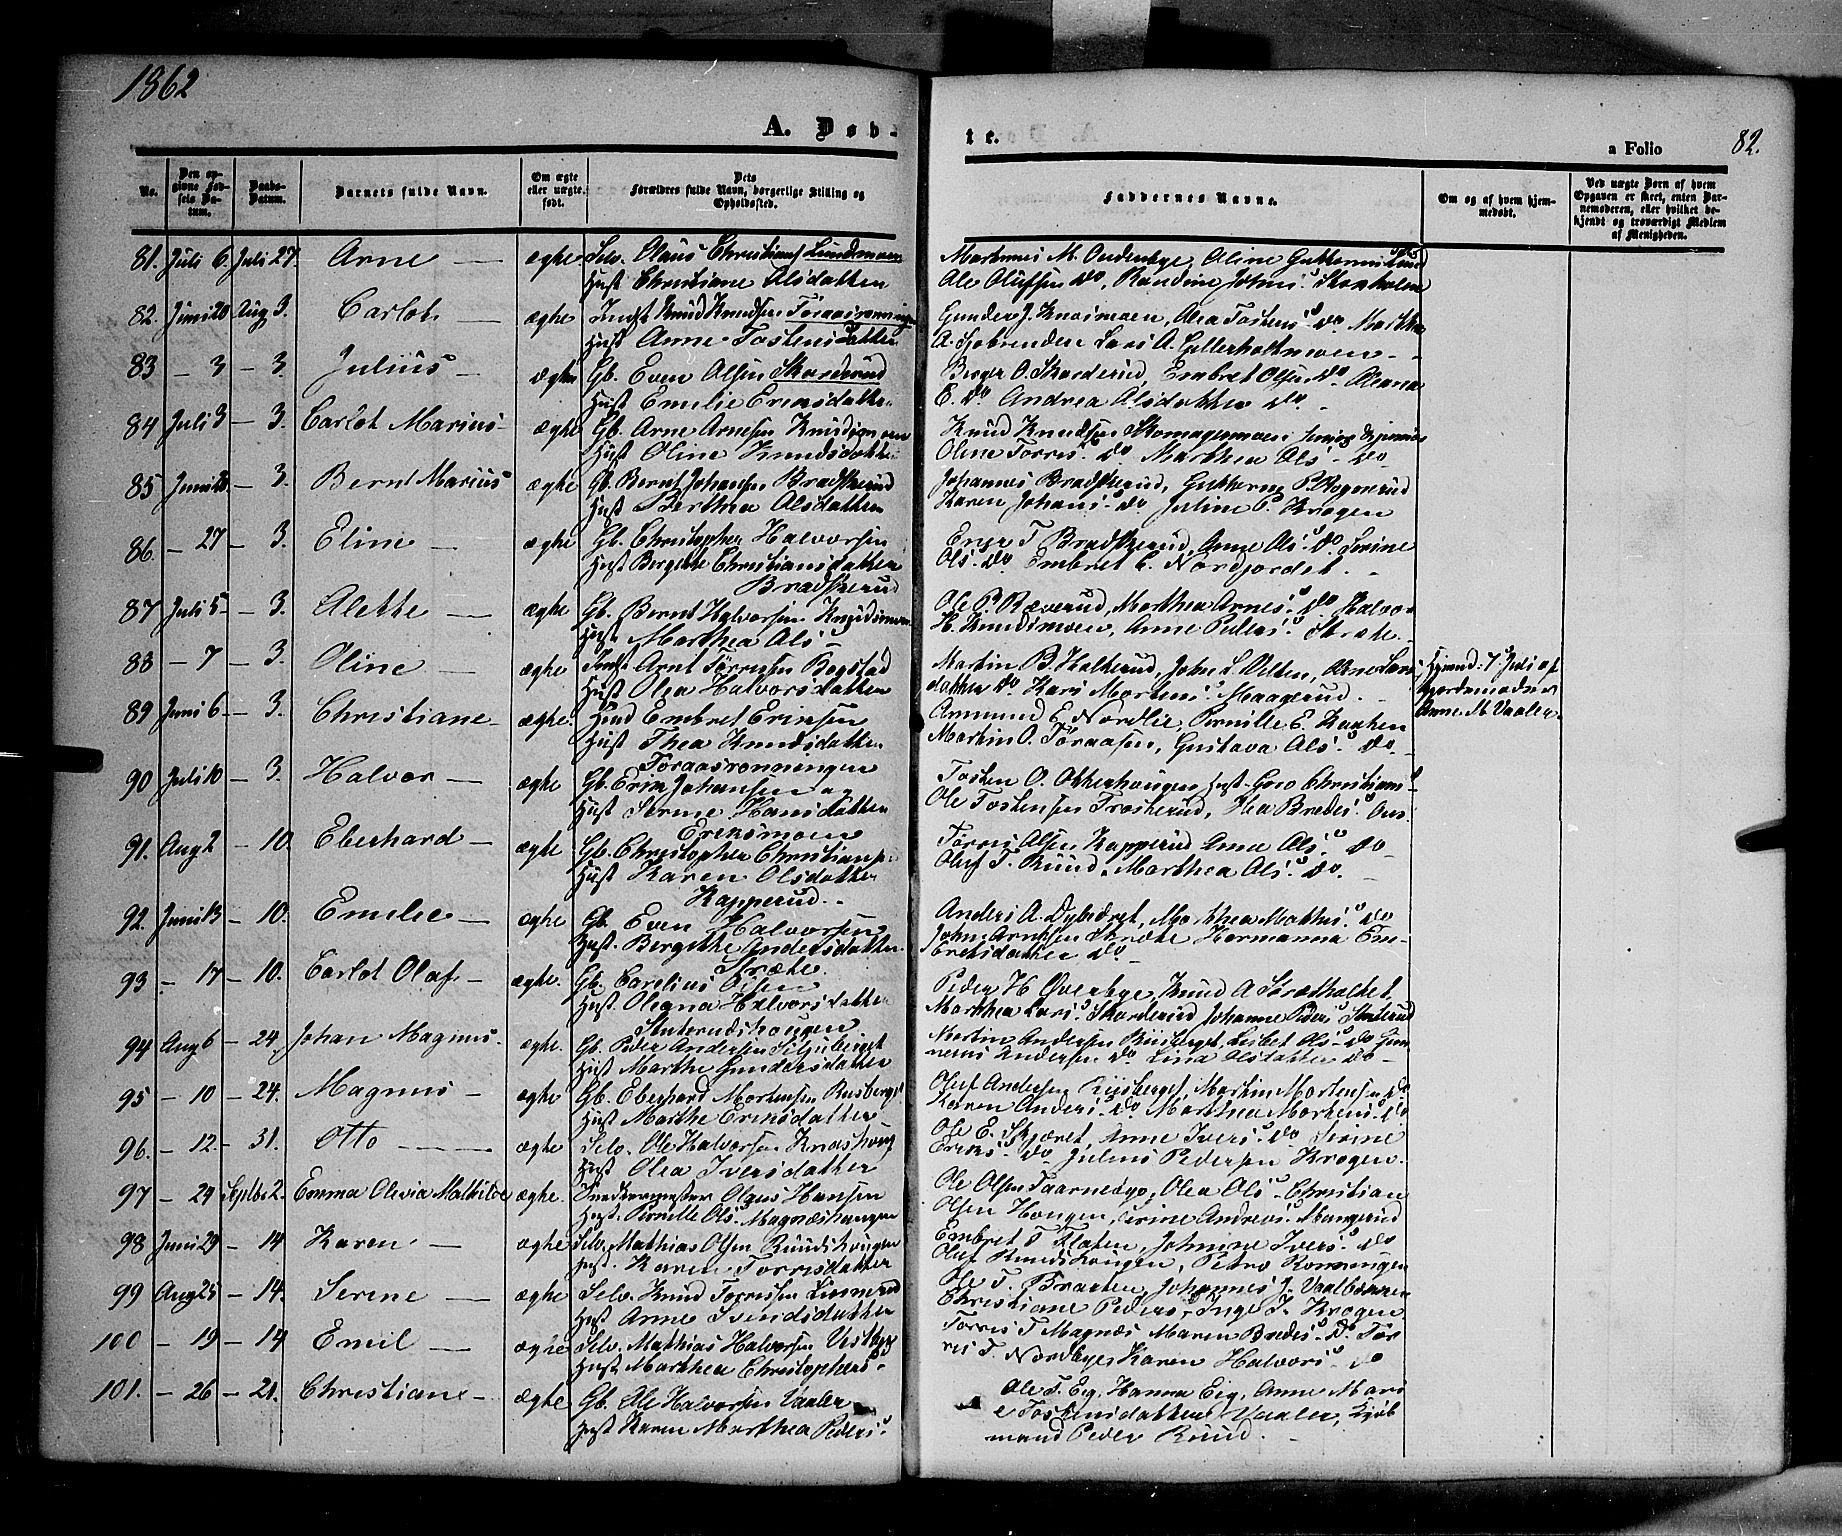 1862
A. Døb-
te.
a Folio
82.
No.
Den opgivne Fødsels Datum.
Daabs-Datum.
Barnets fulde Navn.
Om ægte eller uægte født.
Dets Forældres fulde Navn, borgerlige Stilling og Opholdssted.
Faddernes Navne.
Om og af hvem hjemmedøbt.
Ved uægte Børn af hvem Opgaven er skeet, enten Barnemoderen, eller hvilket bekjendt og troværdigt Medlem af Menigheden.
81. Juli 6. Juli 27. Arne — æghe Selv. Olaus Christians. Lundsmoen
Hust Christiane Olsdatter
Marthinus M. Oudenbye, Oline Guttormsd.
Ole Olufsen do, Randine Johns. Skaxholm
82. Juni 20 Aug 3. Carlot — æghe Inst Knud Knudsen Toraasrønningen
Hust Anne Tostensdatter
Gunder J. Knasmoen, Olea Tostens. do Marthe
A. Sjøbrenden Lars A. Gellerholtmoen -
83 — 3 — 3. Julius — æghe Gb. Even Olsen Skarderud
Hust Emelie Eriksdatter
Berger O. Skarderud, Embret Olsen do. Oleana
E. do Andrea Olsdatter do. -
84 Juli 3 — 3. Carlot Marius — æghe Gb. Arne Arnesen Knudsmoen
Hust Oline Knudsdatter
Knud Knudsen Skomagermoen
Oline Torris. do Marthea Ols. do
85 Juni 28. — 3. Bernt Marius æghe Gb. Bernt Johansen Bradskerud
Hust Berthea Olsdatter
Johannes Bradskerud, Guttorm P. Rogenrud
Karen Johans. do Juline P. Krogen
86. — 27 — 3. Eline — æghe Gb. Christopher Halvorsen
Hust Bergethe Christiansdatter
Bradskerud
Enge T Bradskerud, Anne Ols. do. Serine
Ols. do Embret C. Nordjordet. -
87 Juli 5 — 3. Alette — æghe Gb. Bernt Halvorsen Knudsmoen
Hust Marthea Ols —
Ole P. Ræverud, Marthea Arnes. do Halvor
H. Knudsmoen, Anne Peders. Stræte
88 — 7 — 3. Oline — æghe Inst Arnt Torresen Bogstad
Hust Olea Halvorsdatter
Martin B. Halterud, John L. Velten, Arne Lars
datter do Kari Mortens. Maagerud. -
Hjemd: 7 Juli af
Gjordemoder
Anne M Vaaler
89 Juni 6 — 3. Christiane — æghe. Husd Embret Eriksen
Hust Thea Knudsdatter
Toraasrønningen
Ammund E. Nordlie Pernille E. Kaaten
Martin O. Toraasen, Gustava Ols. do.
90 Juli 10 — 3. Halvor — æghe Gb. Erik Johansen
Hust Serine Hansdatter
Eriksmoen
Tosten O. Okkerhaugen Hust Goro Christians
Ole Tostensen Træskerud, Thea Bredes. Aas.
91. Aug 2 — 10 Eberhard — æghe Gb. Christopher Christians.
Hust Karen Olsdatter
Kapperud. -
Torris Olsen Kapperud Anne Ols. do
Oluf T. Ruud. Marthea Ols. do. -
92. Juni 13 — 10. Emelie — æghe Gb. Even Halvorsen
Hust. Bergethe Andersdatter
Stræte.
Anders A. Dybdret, Marthea Mathis. do
John Arnesen Stræte Hermanna Em-
bretsdatter do -
93 — 17 — 10. Carlot Olaf — æghe. Gb. Carelius Olsen
Hust Oleana Halvorsdatter
Sinterudshaugen
Peder H Øverbye Knud A. Strætholtet
Marthea Lars. Skarderud Johanne Peders Sinterud
94 Aug 6 — 24. Johan Magnus. æghe. Gb. Peder Andersen Siljuberget
Hust Marthe Gundersdatter
Martin Andersen Risberget, Lisbet Ols. do Gun-
nerius Andersen do Lina Olsdatter do -
95 — 10 — 24. Magnus — æghe Gb. Eberhard Mortensen Risberget
Hust Marthe Eriksdatter
Oluf Andersen Risberget, Martin Mortensen do
Karen Anders. do Marthea Mortens. do
96. — 12. — 31. Otto — æghe Selv. Ole Halvorsen Knashaug
Hust Olea Iversdatter
Ole E. Skjæret, Anne Ivers. do Serine
Eriks. do Julius Pedersen Krogen.
97 — 24 Septbr 2. Emma Olivia Mathilde æghe. Snedkermester Olaus Hansen
Hust. Pernille Ols. Magnæshaugen
Ole Olsen Taarnebye, Olea Ols. Christian
Olsen Haugen, Serine Andreas. Mangerud
98 Juni 29 — 14 Karen — æghe Selv. Mathias Olsen Ruudshaugen
Hust. Karen Torrisdatter
Embret T Flaten, Johnine Ivers. do
Oluf Ruudshaugen, Petro Ronningen
99 Aug 25 — 14. Serine — æghe Selv. Knud Torrissen Linnerud
Hust Anne Svendsdatter
Ole T. Braaten, Johannes J. Vaalberen
Christiane Peders. Inge T. Krogen
100 — 19 — 14 Emil — æghe Selv. Mathias Halvorsen Vestbye
Hust Marthea Christophers. -
Torris T Magnæs Maren Bredes. do. Tor-
ris T. Nordbye, Karen Halvors. do
101. — 26 — 21. Christiane — æghe Gb. Ole Halvorsen Vaaler
Hust Karen Marthea Peders.
Ole T. Eig, Hanna Eig, Anne Mari
e Tostensdatter Vaaler, Kjøb
mand Peder Ruud. -